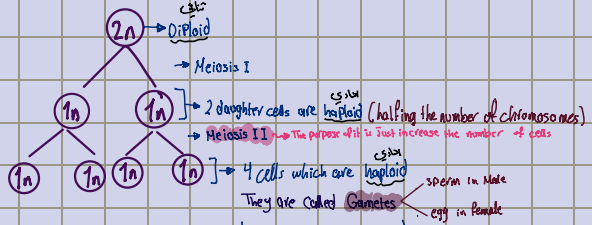 ثنائي
2n → Diploid
→ Meiosis I
احادي
1n 1n → 2 daughter cells are haploid (halfing the number of chromosomes)
→ Meiosis II → The purpose of it is Just increase the number of cells
احادي
1n 1n 1n 1n → 4 cells which are haploid
They are called Gametes
sperm in Male
egg in Female